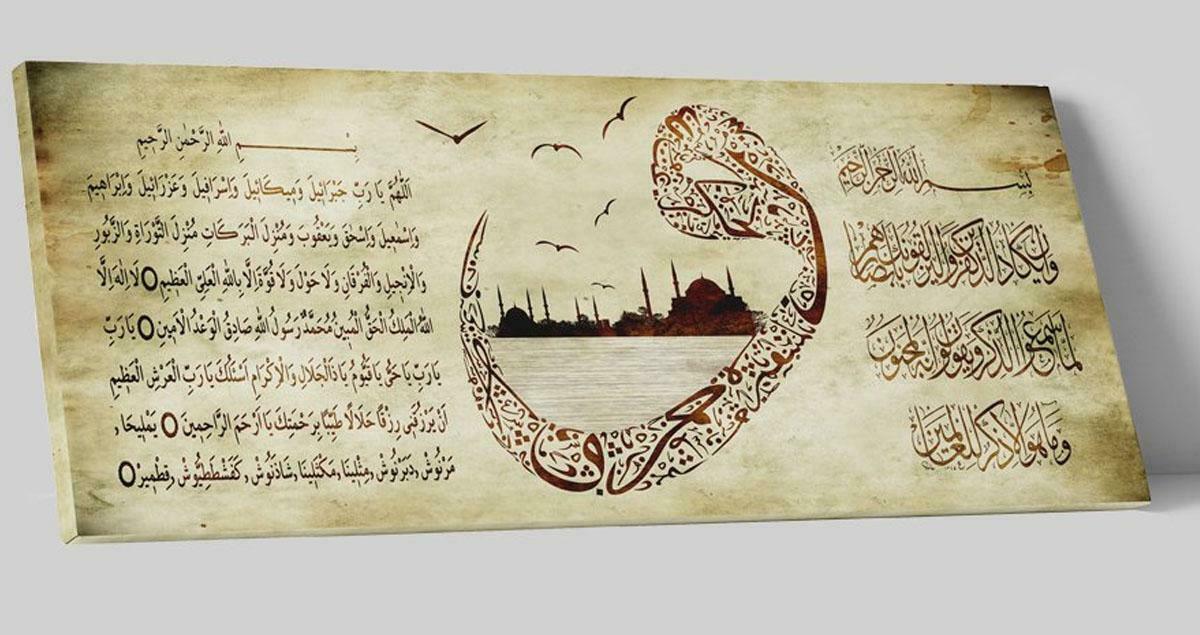 بِسْمِ اللهِ الرَّحْمٰنِ الرَّحِيمِ
وَاِنْ يَكَادُ الَّذِينَ كَفَرُوا لَيُزْلِقُونَكَ بِاَبْصَارِهِمْ
لَمَّا سَمِعُوا الذِّكْرَ وَيَقُولُونَ اِنَّهُ لَمَجْنُونٌ
وَمَا هُوَ اِلَّا ذِكْرٌ لِلْعَالَمِينَ
بِسْمِ اللهِ الرَّحْمٰنِ الرَّحِيمِ
اَللّٰهُمَّ يَا رَبِّ جَبْرَائِيلَ وَمِيكَائِيلَ وَاِسْرَافِيلَ وَعَزْرَائِيلَ وَاِبْرَاهِيمَ
وَاِسْمٰعِيلَ وَاِسْحٰقَ وَيَعْقُوبَ وَمُنْزِلَ الْبَرَكَاتِ مُنْزِلَ التَّوْرَاةِ وَالزَّبُورِ
وَالْاِنْجِيلِ وَالْفُرْقَانِ وَلَا حَوْلَ وَلَا قُوَّةَ اِلَّا بِاللهِ الْعَلِيِّ الْعَظِيمِ O لَا اِلٰهَ اِلَّا
اللهُ الْمَلِكُ الْحَقُّ الْمُبِينُ مُحَمَّدٌ رَسُولُ اللهِ صَادِقُ الْوَعْدُ الْاَمِينِ O يَا رَبِّ
يَا رَبِّ يَا حَيُّ يَا قَيُّومُ يَا ذَالْجَلَالِ وَالْاِكْرَامِ اَسْئَلُكَ يَا رَبَّ الْعَرْشِ الْعَظِيمِ
اَنْ يَرْزُقَنِي رِزْقًا حَلَالًا طَيِّبًا بِرَحْمَتِكَ يَا اَرْحَمَ الرَّاحِمِينَ O يَمْلِيخَا,
مَرْنُوشْ, دَبَرْنُوشْ, مِثْلِينَا, مَكْثَلِينَا, شَاذَنُوشْ, كَفَشْطَطِيُّوشْ, قِطْمِيرْ O